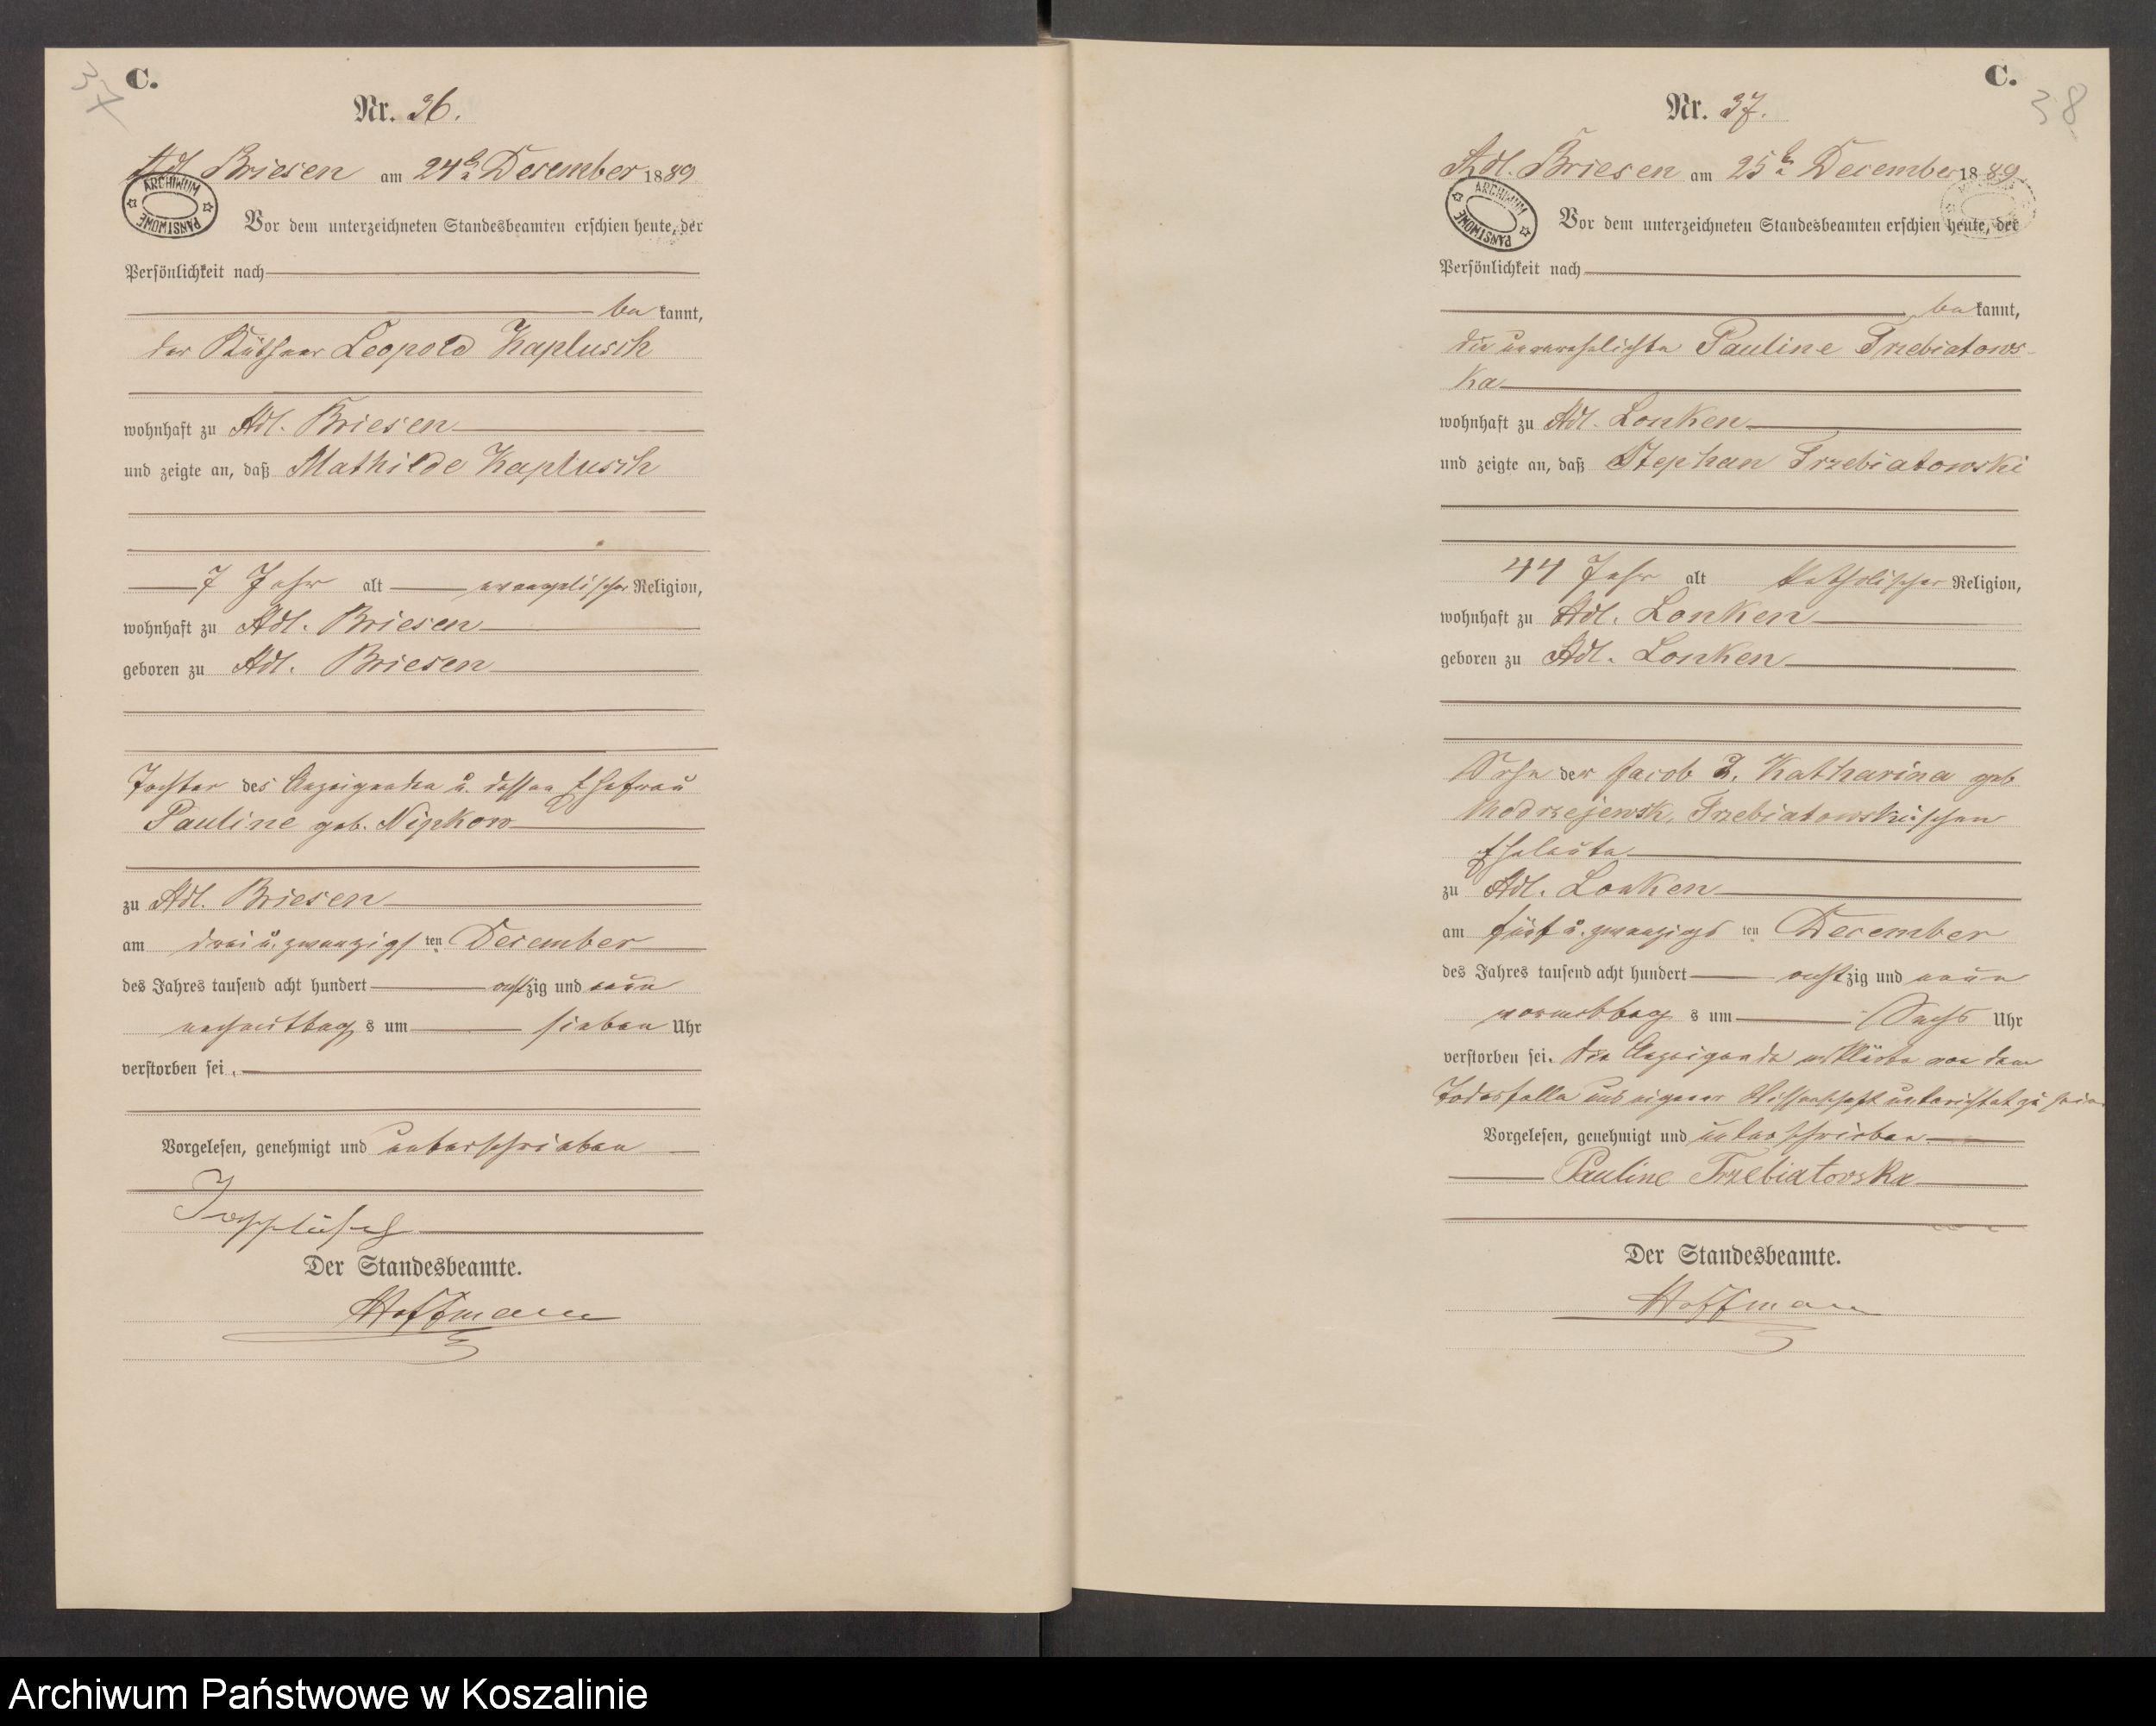 37
C.
Nr. 36.
Adl. Briesen am 24t Desember 1889
ARCHIWUM PAŃSTWOWE
Vor dem unterzeichneten Standesbeamten erschien heute, der
Persönlichkeit nach
be kannt,
der Käthner Leopold Kaplusch
wohnhaft zu Adl. Briesen
und zeigte an, daß Mathilde Kaplusch
7 Jahr alt evangelischer Religion,
wohnhaft zu Adl. Briesen
geboren zu Adl. Briesen
Tochter des Anzeigenden u. dessen Ehefrau
Pauline geb. Nipkow
zu Adl. Briesen
am drei u. zwanzigsten Desember
des Jahres tausend acht hundert achtzig und neun
nachmittags um sieben Uhr
verstorben sei.
Vorgelesen, genehmigt und unterschrieben
Der Standesbeamte.
Hoffmann
C.
38
Nr. 37.
Adl. Briesen am 25t December 1889
ARCHIWUM PAŃSTWOWE
Vor dem unterzeichneten Standesbeamten erschien heute, der
Persönlichkeit nach
be kannt,
die unverehelichte Pauline Trzebiatows-
ka
wohnhaft zu Adl. Lonken
und zeigte an, daß Stephan Trzebiatowski
44 Jahr alt katholischer Religion,
wohnhaft zu Adl. Lonken
geboren zu Adl. Lonken
Sohn der Jacob u. Katharina geb
Modrzejewsk, Trzebiatowskischen
Eheleute
zu Adl. Lonken
am fünf u. zwanzigsten December
des Jahres tausend acht hundert achtzig und neun
vormittags um Sechs Uhr
verstorben sei. Die Anzeigende erklärte von dem
Todesfalle aus eigener Wissenschaft unterrichtet zu sein
Vorgelesen, genehmigt und unterschrieben
Pauline Trzebiatowska
Der Standesbeamte.
Hoffmann
Archiwum Państwowe w Koszalinie